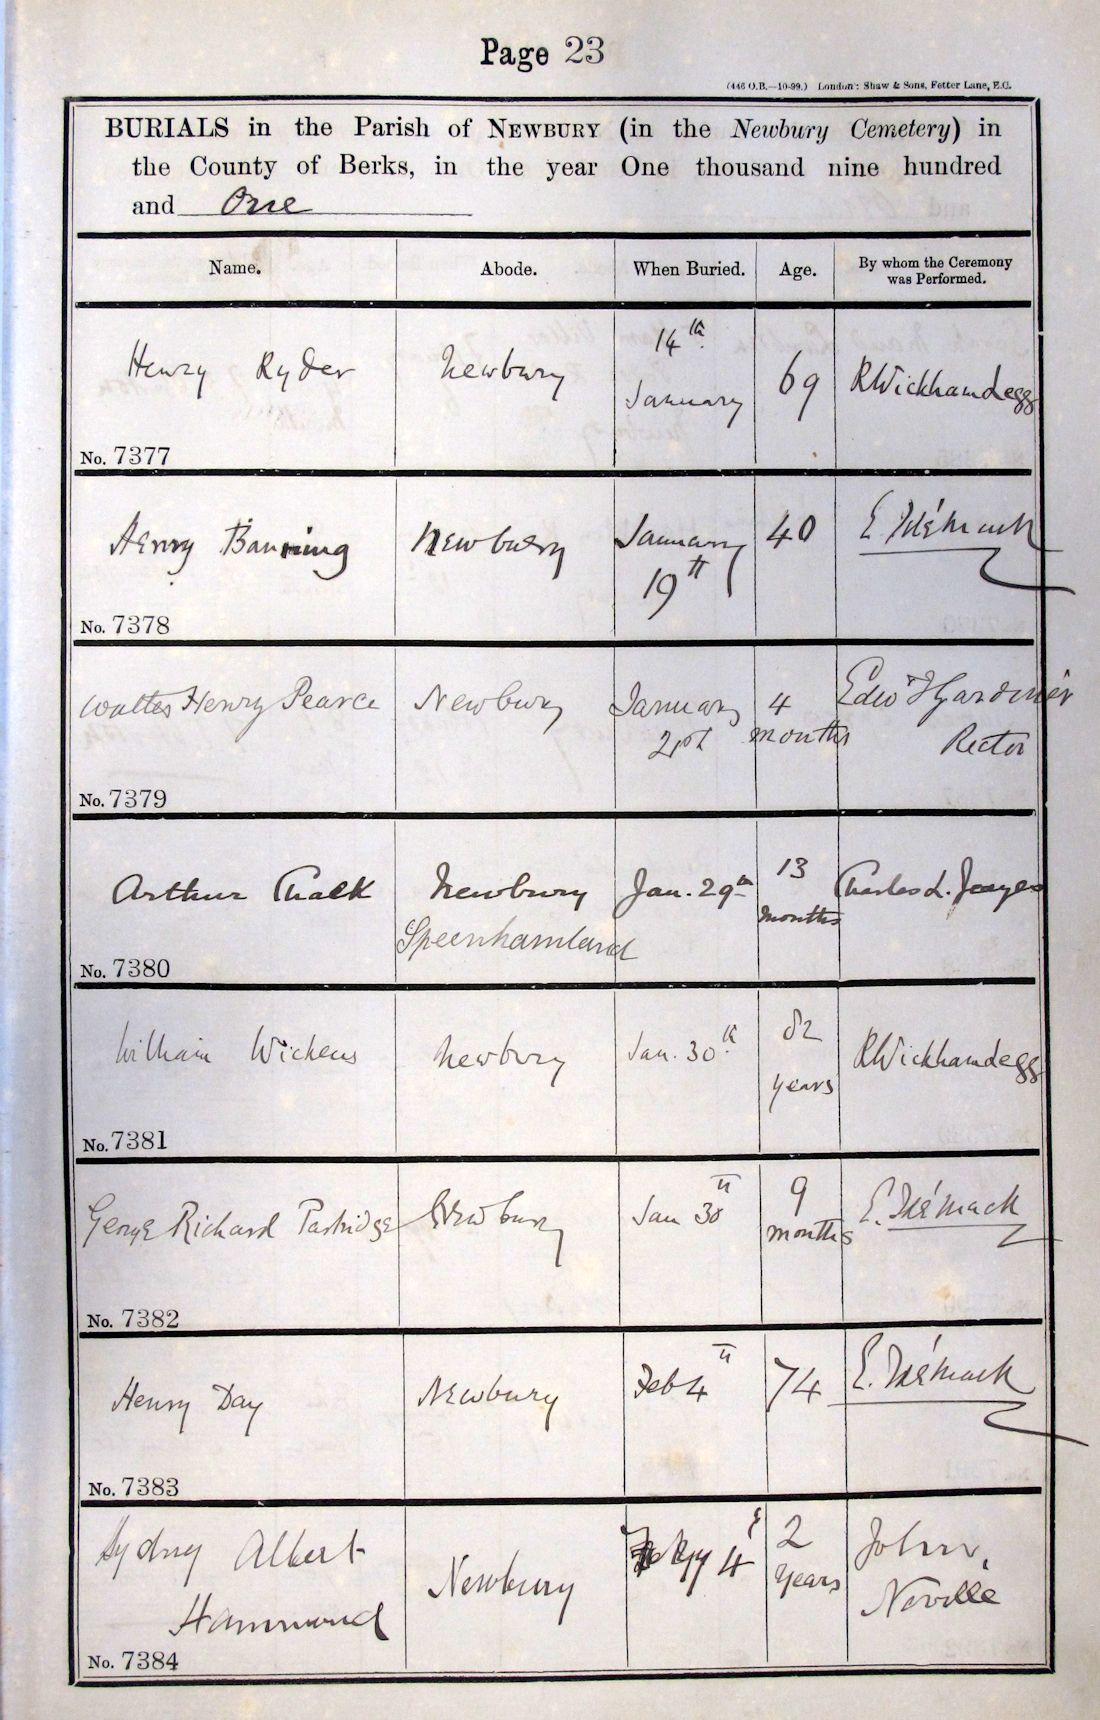 Page 23
(446 O.B.—10-99.) London: Shaw & Sons, Fetter Lane, E.C.
BURIALS in the Parish of NEWBURY (in the Newbury Cemetery) in
the County of Berks, in the year One thousand nine hundred
and One
Name. Abode. When Buried. Age. By whom the Ceremony
was Performed.
Henry Ryder Newbury 14th January 69 RWickhamLegg
No. 7377
Henry Banning Newbury January 19th 40 E.
No. 7378
Walter Henry Pearce Newbury January 21st 4 months Edwd Gardiner Rector
No. 7379
Arthur Chalk Newbury Speenhamland Jan. 29th 13 months Charles L.
No. 7380
William Wickens Newbury Jan. 30th 82 years RWickhamLegg
No. 7381
George Richard Partridge Newbury Jan 30th 9 months E.
No. 7382
Henry Day Newbury Feb 4th 74 E.
No. 7383
Sydney Albert Hammond Newbury 4 2 years John Neville
No. 7384